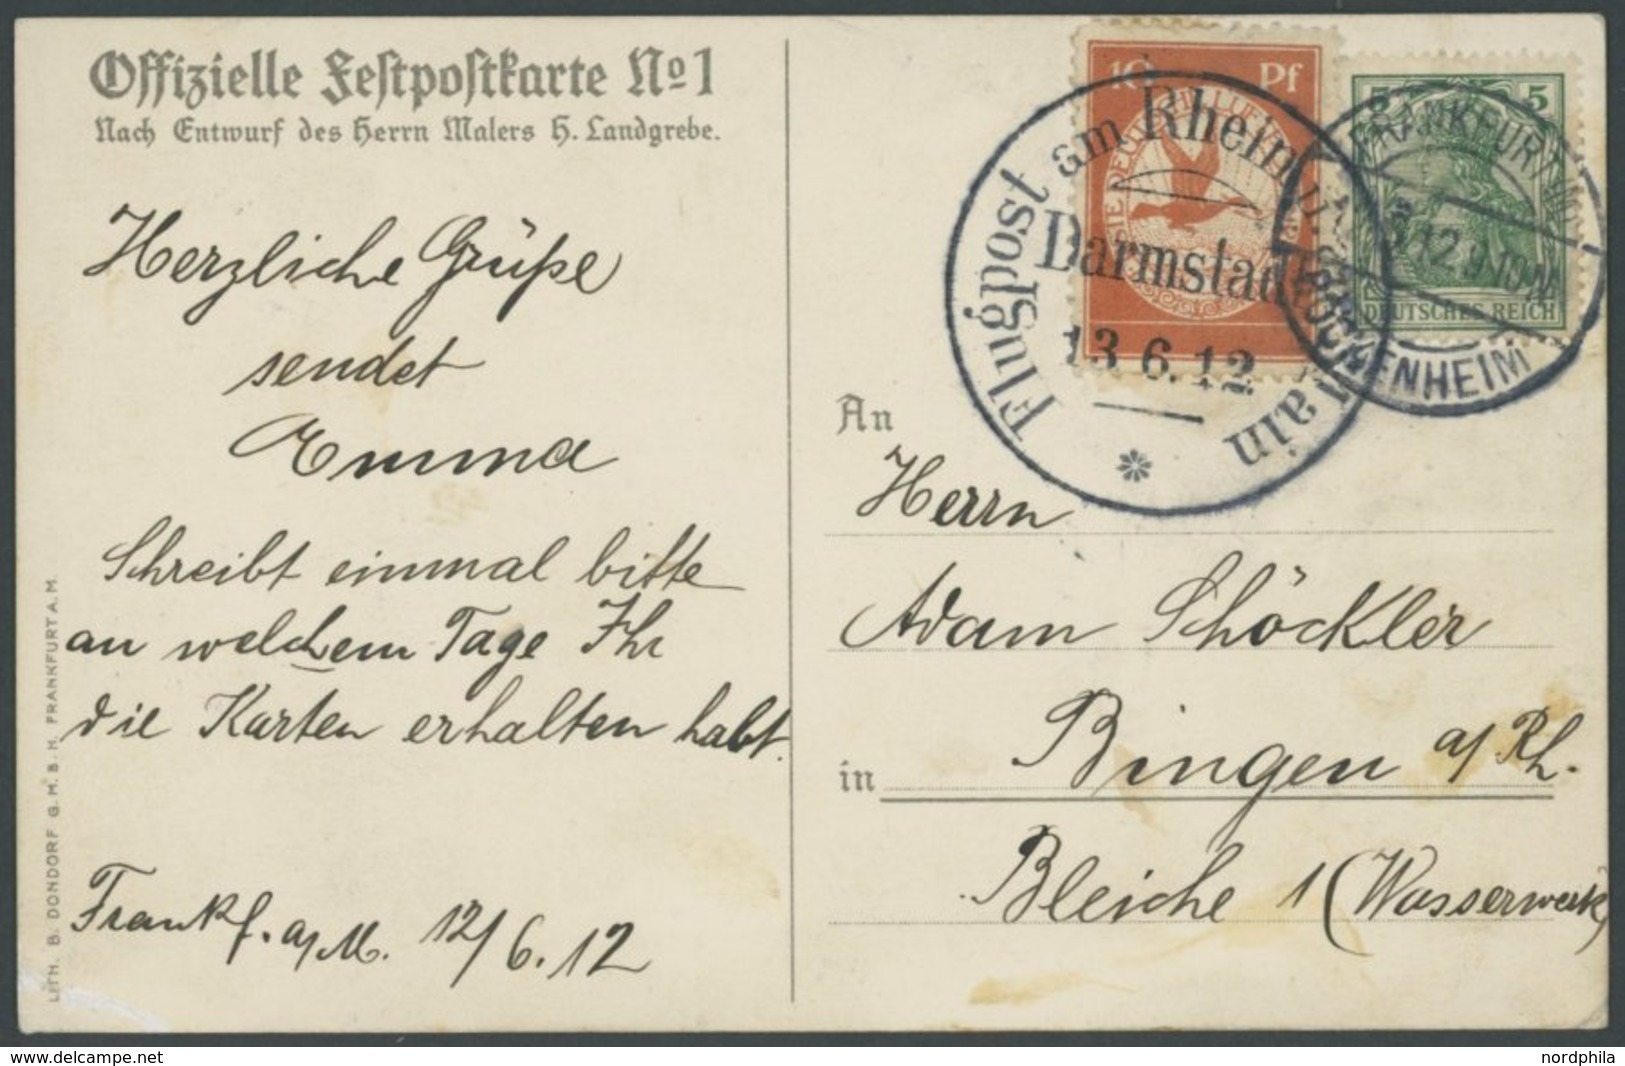 Offizielle Festpostkarte No 1
Nach Entwurf des Herrn Malers H. Landgrebe.
Herzliche Grüße
sendet
Emma
Schreibt einmal bitte
an welchem Tage Ihr
die Karten erhalten habt.
Frankf. a/M. 12/6.12
LITH. B. DONDORF G.M.B.H. FRANKFURT A.M.
10 Pf
Flugpost am Rhein u. Main
Darmstadt
13.6.12
5 5
DEUTSCHES REICH
FRANKFURT
BOCKENHEIM
An
Herrn
Adam Schöckler
in Bingen a/Rh.
Bleiche 1 (Wasserwerk)
nordphila